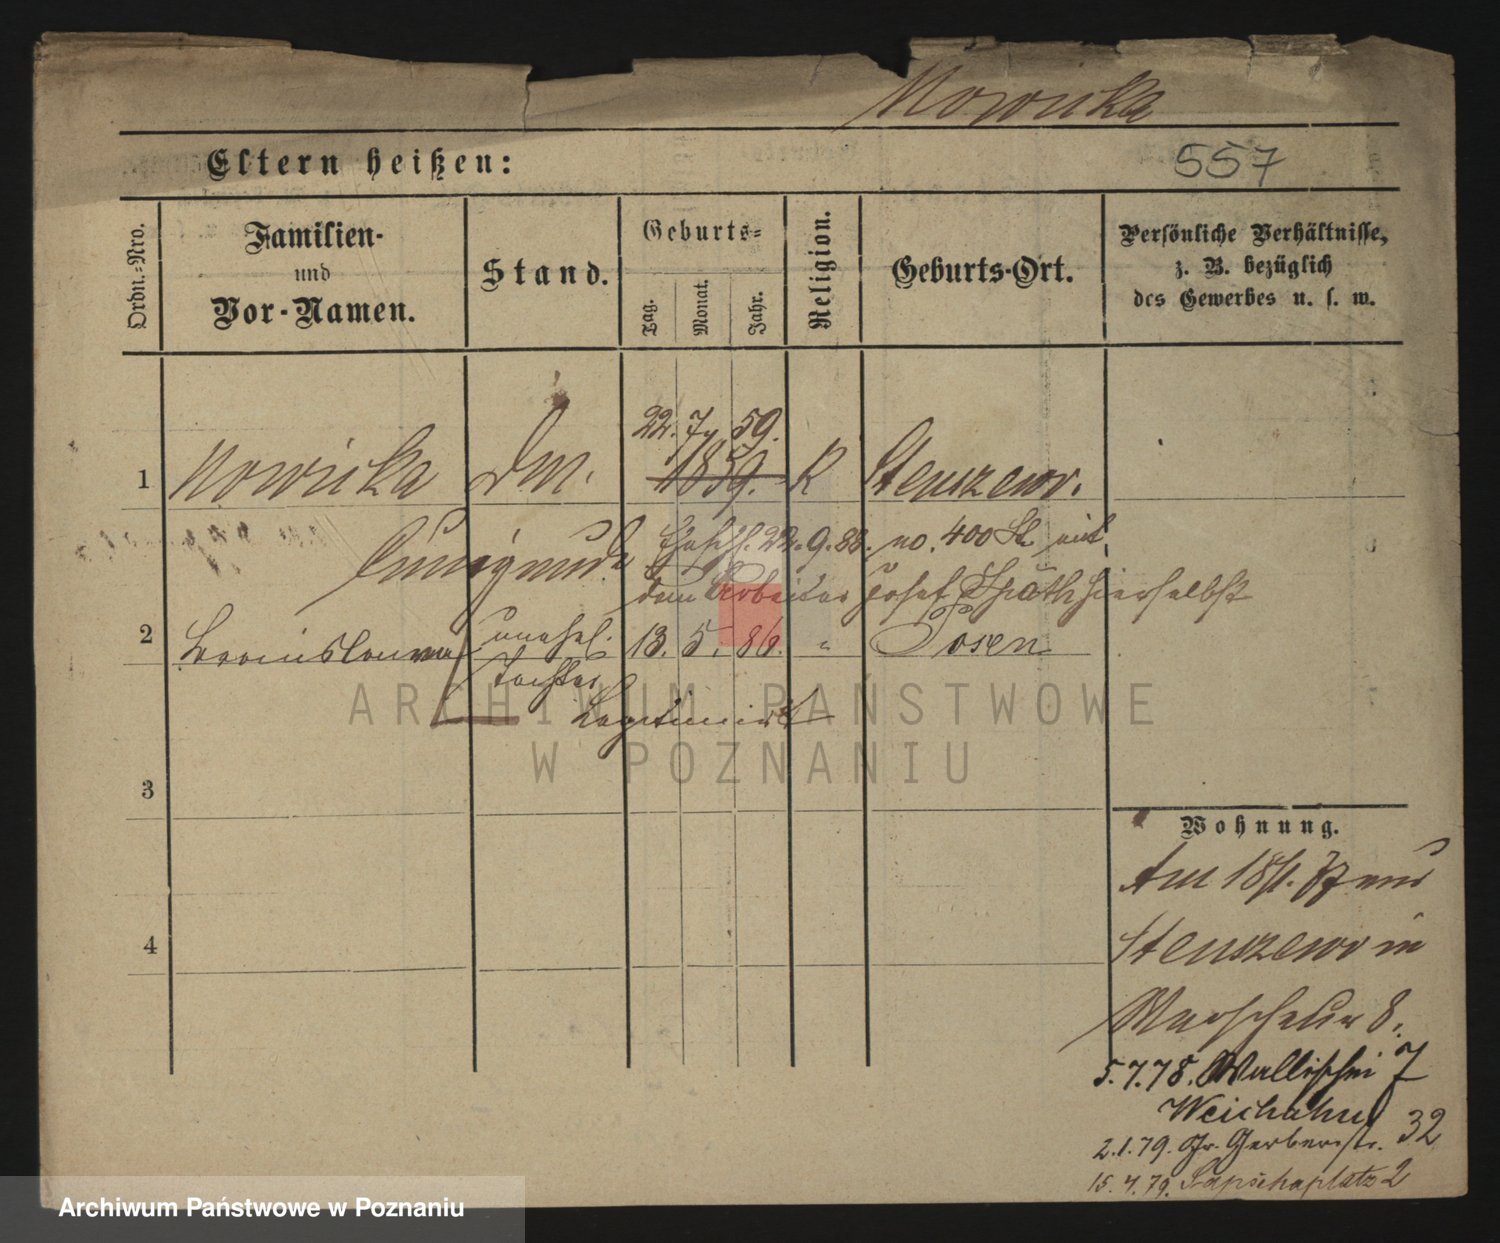 Nowicka
Eltern heißen:
557
Ordn.-Nro.
Familien-
und
Vor-Namen.
Stand.
Geburts-
Tag.
Monat.
Jahr.
Religion.
Geburts-Ort.
Persönliche Verhältnisse,
z. B. bezüglich
des Gewerbes u. s. w.
22. 7. 59.
1 Nowicka DM. 1859. R Stenszewo.
Cunigunde
Ehesch. 22.9.88. no. 400 St. mit
dem Arbeiter Josef Späth hierselbst
2 unehel. 13. 5. 86. " Posen
Tochter
Legitimirt
3
4
Wohnung.
Am 18/1. 77 aus
Stenszewo in
Warschauer 8.
5.7.78. Wallischei 7
Weichahn
2.1.79. Gr. Gerberstr. 32
15.4.79. Sapiehaplatz 2
ARCHIWUM PAŃSTWOWE
W POZNANIU
Archiwum Państwowe w Poznaniu